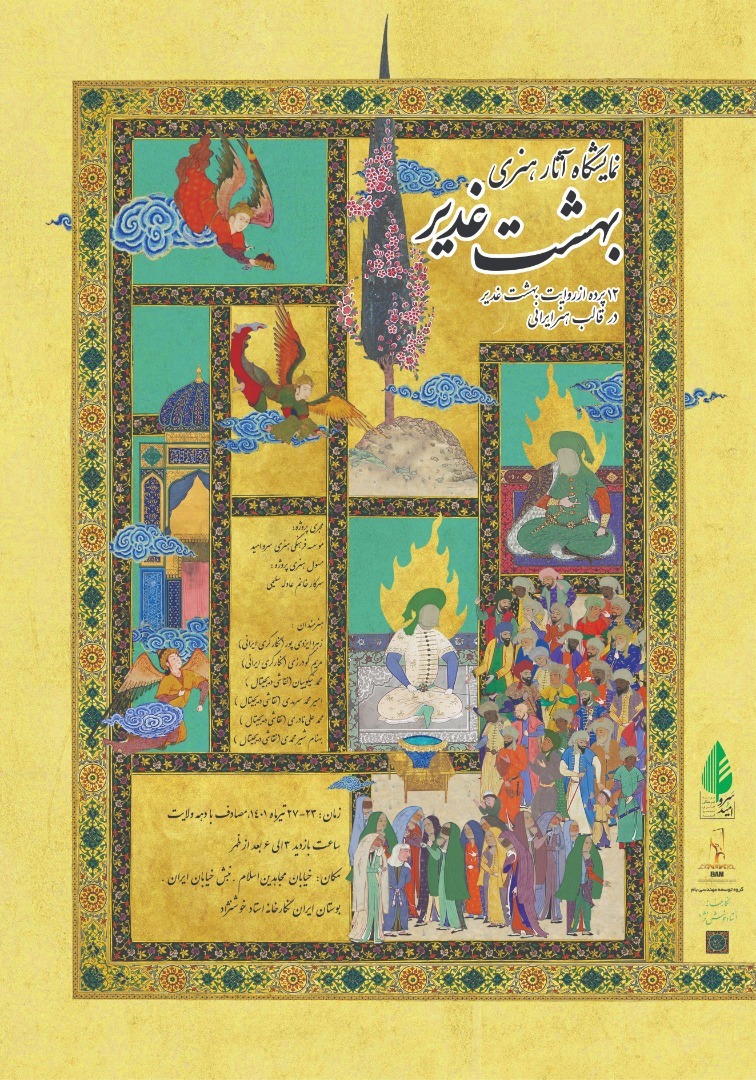 نمایشگاه آثار هنری
بهشت غدیر
۱۲ پرده از روایت بهشت غدیر
در قالب هنر ایرانی
مجری پروژه:
موسسه فرهنگی هنری سرو امید
مسئول هنری پروژه:
سرکار خانم عادله سلیمی
هنرمندان:
زهرا ایزدی پور (نگارگری ایرانی)
مریم گودرزی (نگارگری ایرانی)
محمد نیکوبیان (نقاشی دیجیتال)
امیر محمد سهدی (نقاشی دیجیتال)
محمد علی نادری (نقاشی دیجیتال)
بهنام شیرمحمدی (نقاشی دیجیتال)
زمان: ۲۳-۲۷ تیرماه ۱۴۰۱، مصادف با دهه ولایت
ساعت بازدید ۳ الی ۶ بعد از ظهر
مکان: خیابان مجاهدین اسلام . نبش خیابان ایران .
بوستان ایران نگارخانه استاد خوشنژاد
سرو امید
BAN
گروه توسعه مهندسی بام